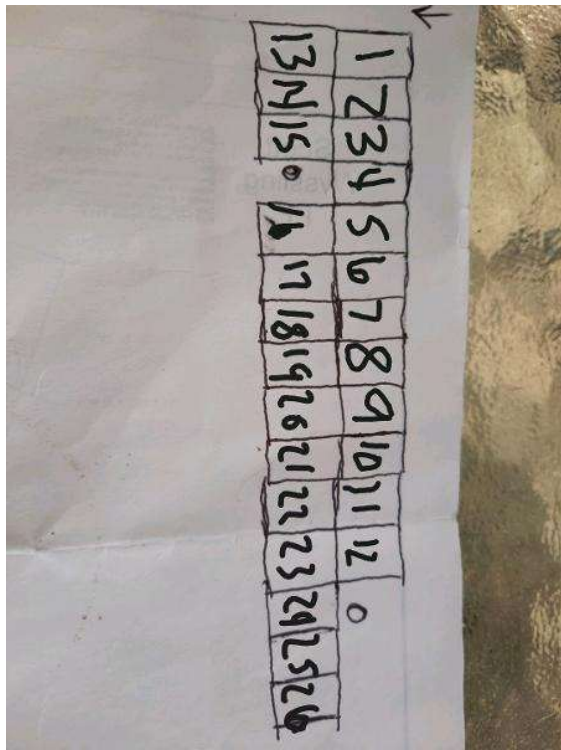 1 2 3 4 5 6 7 8 9 10 11 12
13 14 15 16 17 18 19 20 21 22 23 24 25 26